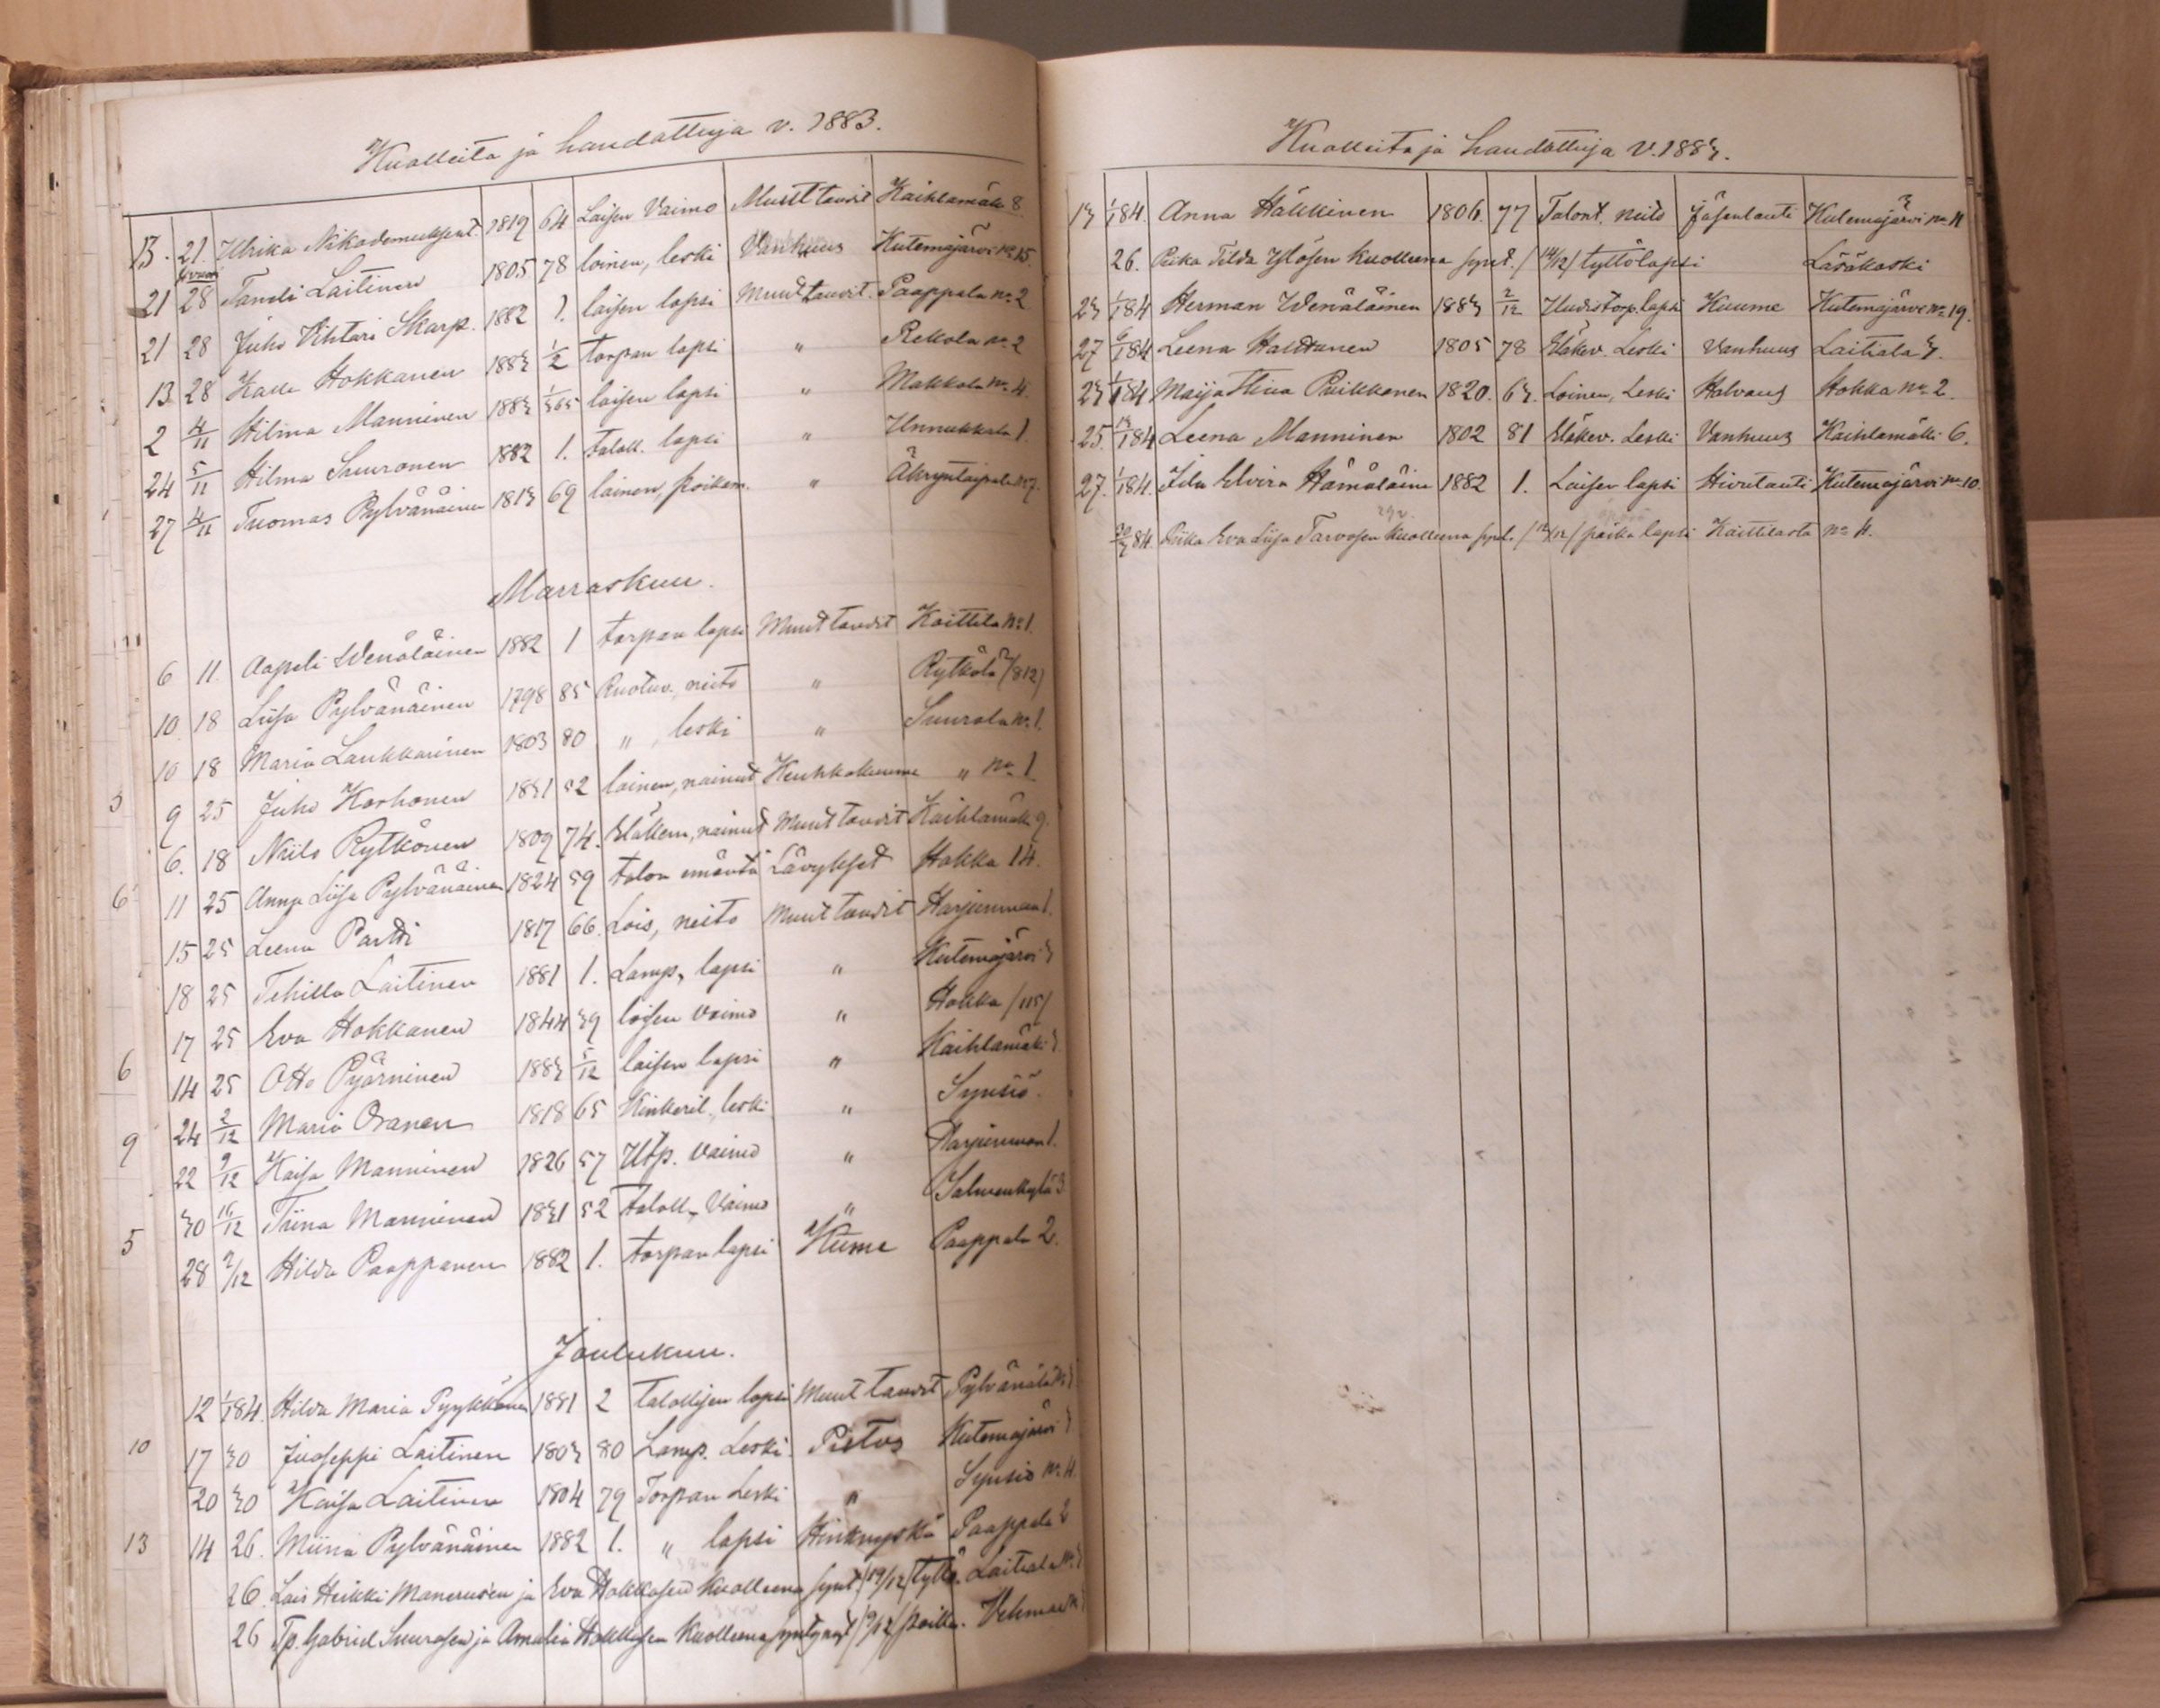 Kuolleita ja haudattuja v. 1883.
13. 21. Ulrika Nikodemuksent. 1819 64 Loisen Vaimo Muut taudit Kaihlamäki 8
21 28 Taneli Laitinen 1805 78 loinen, leski Vanhuus Kutemajärvi No 15.
21 28 Juho Vihtari Skarp. 1882 1. loisen lapsi Muut taudit. Paappala No 2
13 28 Kalle Hokkanen 1883 1/2 torpan lapsi " Rekola No 2
2 4/11 Hilma Manninen 1883 1/365 loisen lapsi " Makkola No 4.
24 5/11 Hilma Suuronen 1882 1. taloll. lapsi " Unnukkala 1.
27 4/11 Tuomas Pylvänäinen 1813 69 loinen, poikam. " Äkryntaipale No 7.
Marraskuu.
6 11. Aapeli Wenäläinen 1882 1 torpan lapsi Muut taudit Koittila No 1.
10 18 Liisa Pylvänäinen 1798 85 Ruotuv., neito " Rytkölä (812)
10 18 Maria Laukkarinen 1803 80 " , leski " Suurola No 1.
9 25 Juho Korhonen 1831 52 loinen, nainut Keuhkokuume " No 1.
6. 18 Niilo Rytkönen 1809 74. Eläkem., nainut Muut taudit Kaihlamäki 9.
6 11 25 Anna Liisa Pylvänäinen 1824 59 talon emäntä Lävykset Hokka 14.
15 25 Leena Partti 1817 66. Lois, neito Muut taudit Harjunmaa 1.
18 25 Tehilla Laitinen 1881 1. Lamp., lapsi " Kutemajärvi 3
17 25 Eva Hokkanen 1844 39 loisen vaimo " Hokka (115)
6 14 25 Otto Pyärninen 1883 5/12 loisen lapsi " Kaihlamäki 3
24 2/12 Maria Oranen 1818 65 Kinkeril., leski " Synsiö.
9 22 9/12 Kaisa Manninen 1826 57 Utp. vaimo " Harjunmaa 1.
30 16/12 Tiina Manninen 1831 52 taloll., Vaimo " Salmenkylä 3
5 28 2/12 Hilda Paappanen 1882 1. torpan lapsi Kuume Paappala 2.
Joulukuu.
12 1/184. Hilda Maria Pyykkönen 1881 2 talollisen lapsi Muut taudit Pylvänälä No 1
10 17 30 Juoseppi Laitinen 1803 80 Lamp. Leski. Pistos Kutemajärvi 3
20 30 Kaisa Laitinen 1804 79 Torpan Leski " Synsiö No 4.
13 14 26. Miina Pylvänäinen 1882 1. " lapsi Hinkuyskä Paappala 2
26. Lois Heikki Manerusen ja Eva Hokkosen kuolleena synt. (19/12) tyttö. Laitiala No 3
26 Tp. Gabriel Suurosen ja Amalia Hokkosen kuolleena syntynyt (9/12) poika. Vehmaa No 3
Kuolleita ja haudattuja v. 1883.
13 1/184. Anna Häkkinen 1806. 77 Talont. neito Jäsentauti Kutemajärvi No 11
26. Piika Tilda Ylösen kuolleena synt. (14/12) tyttölapsi Läsäkoski
23 1/184 Herman Wenäläinen 1883 2/12 Uudistorp. lapsi Kuume Kutemajärvi No 19.
27 6/184 Leena Halttunen 1805 78 Eläkev. Leski Vanhuus Laitiala 3.
23 1/184 Maija Stiina Puikkonen 1820. 63. Loinen, Leski Halvaus Hokka No 2.
25. 13/184 Leena Manninen 1802 81 Eläkev. Leski Vanhuus Kaihlamäki 6.
27. 1/184. Ida Elvira Hämäläine 1882 1. Loisen lapsi Hivutauti Kutemajärvi No 10.
30/3 84. Piika Eva Liisa Tarvosen kuolleena synt. (12/12) poika lapsi Koittilasta No 4.